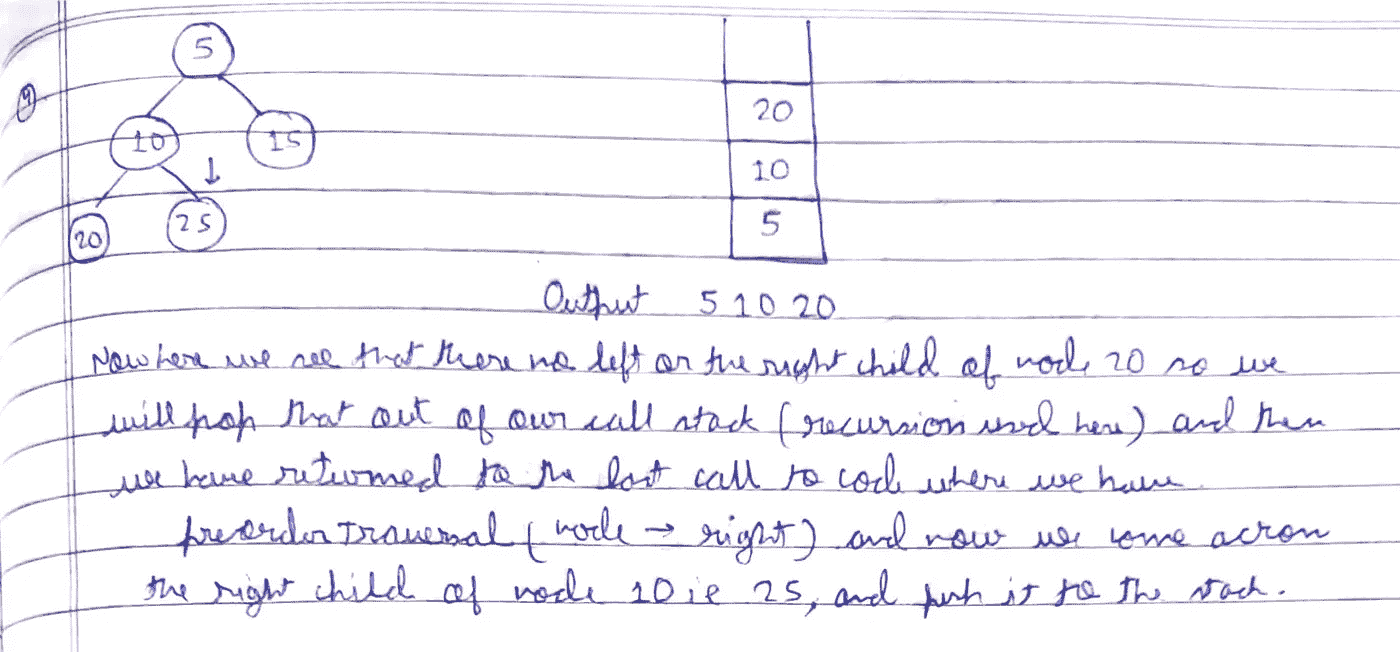 9
5
10 15
20 25
20
10
5
Output 5 10 20
Now here we see that there no left or the right child of node 20 so we
will pop that out of our call stack (recursion used here) and then
we have returned to the last call to code where we have
preorderTraversal (node → right) and now we come across
the right child of node 10 ie 25, and push it to the stack.